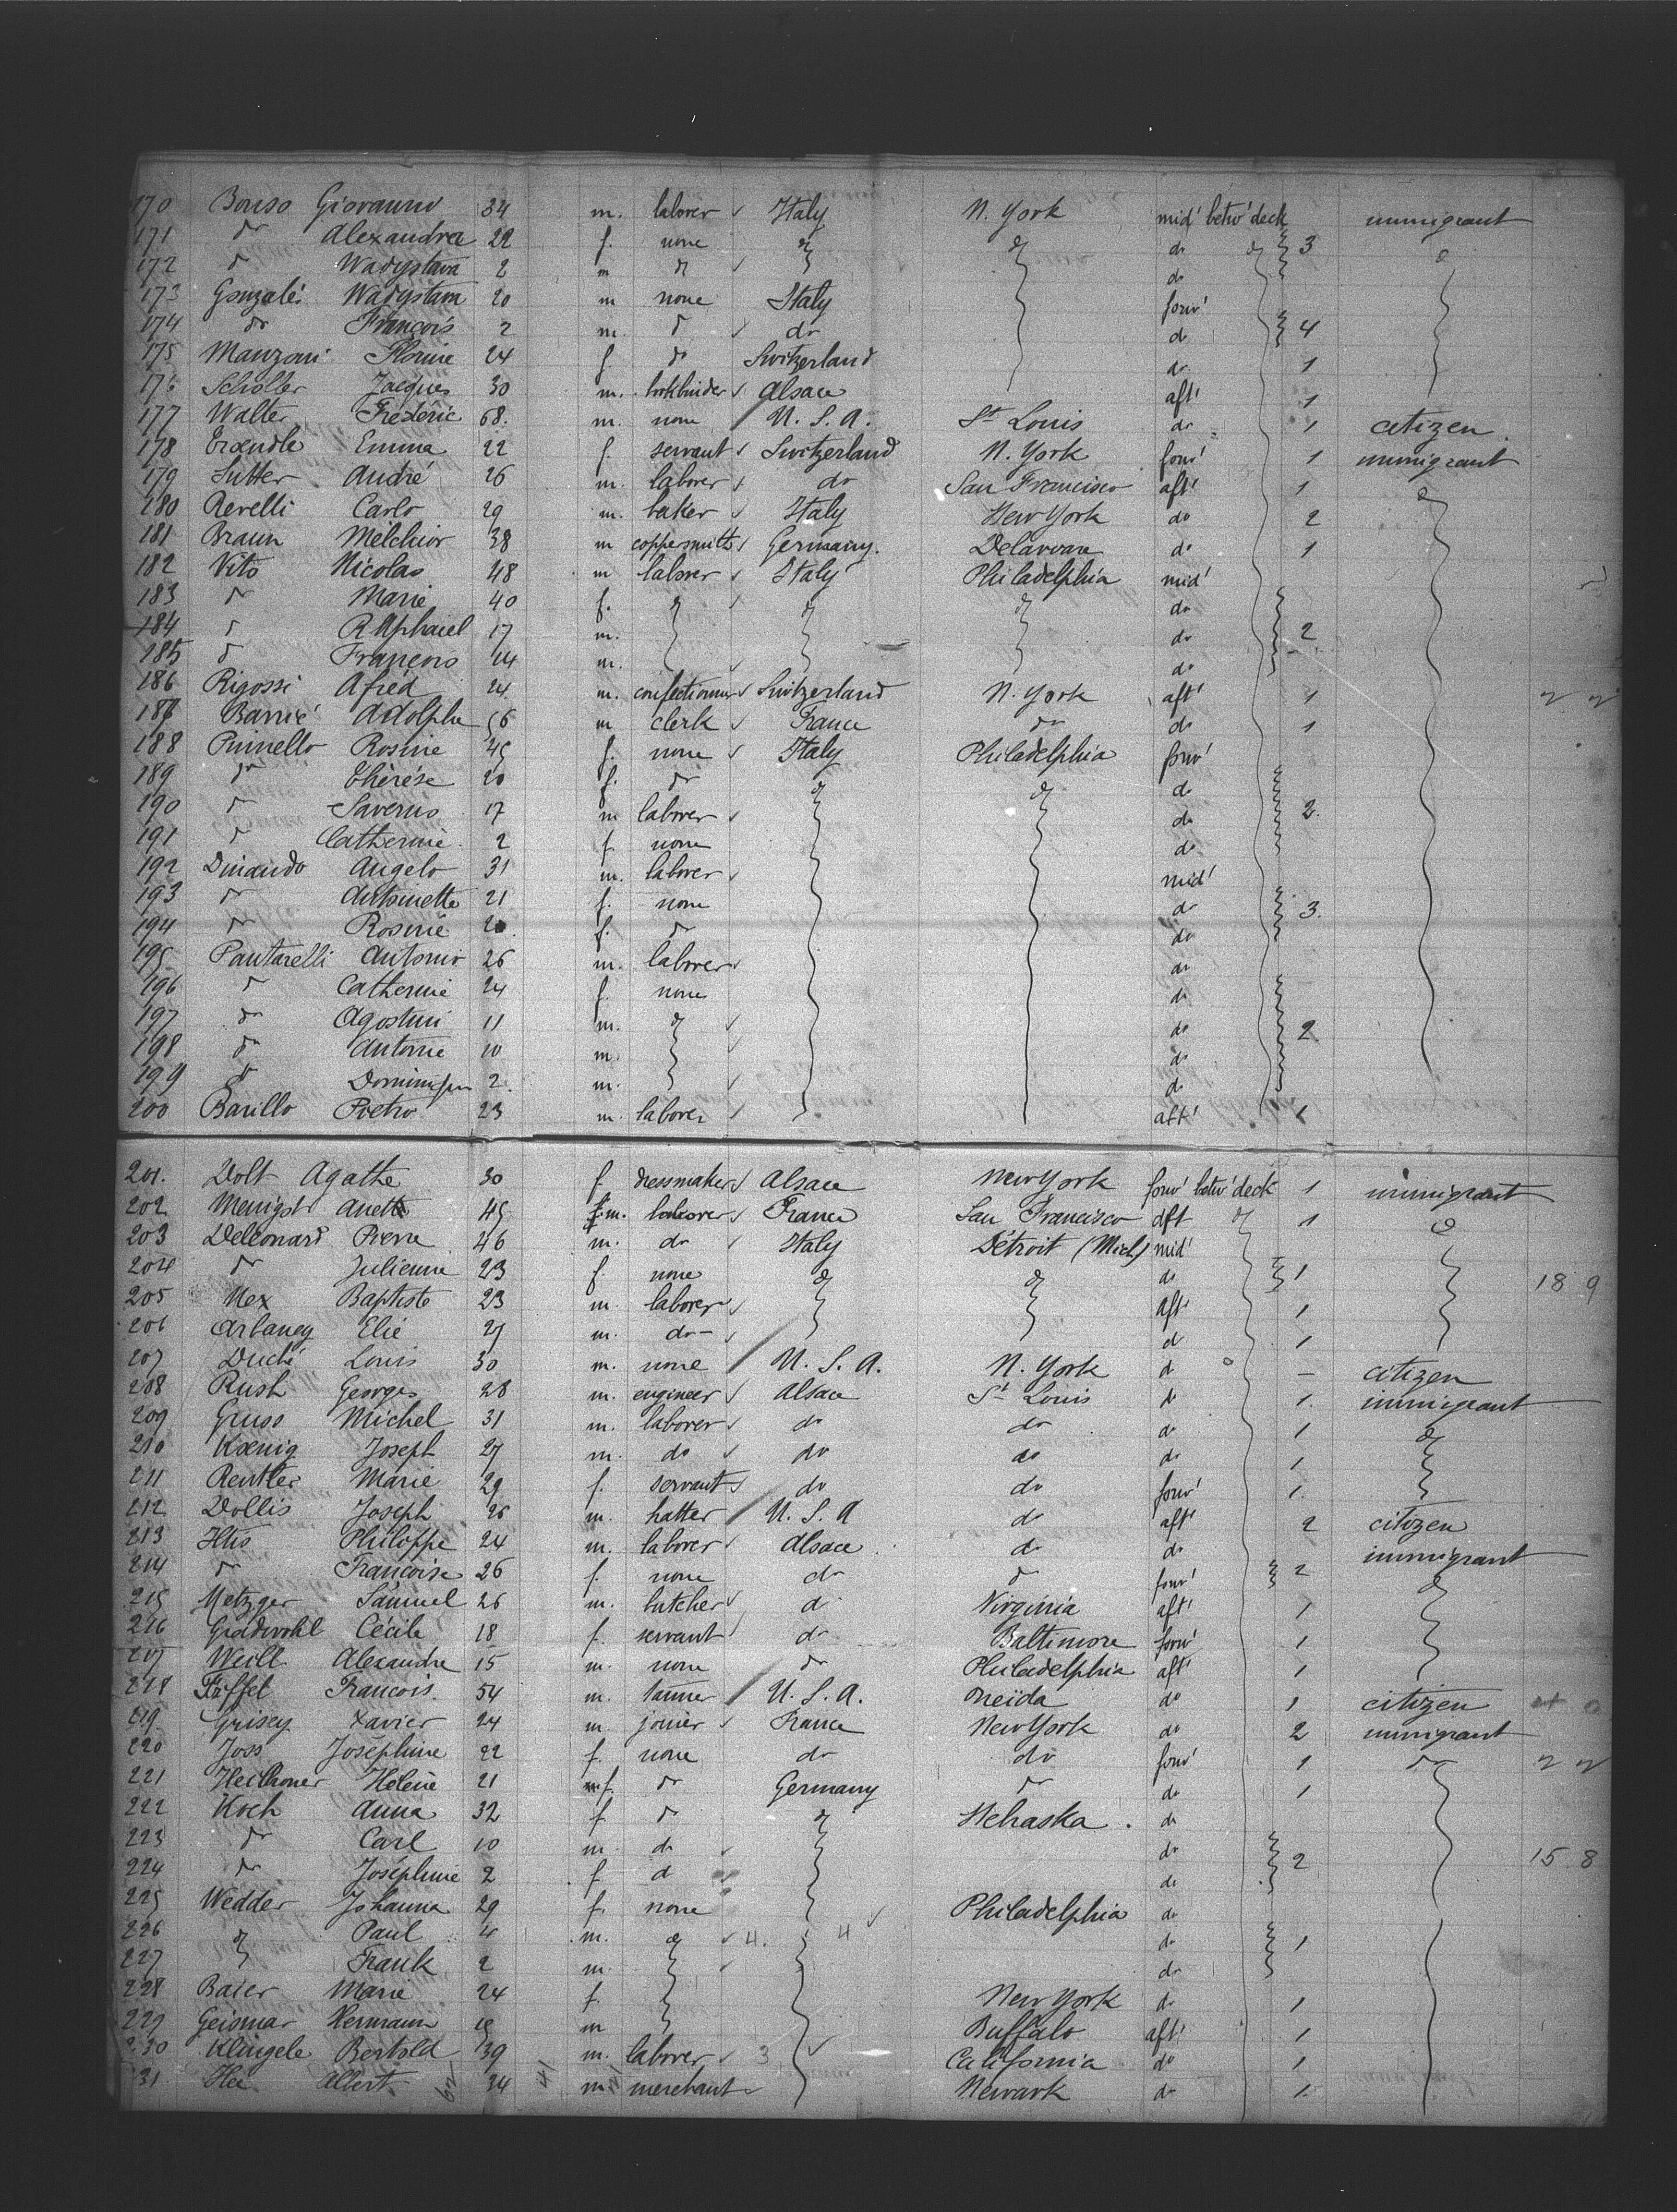 170 Bonso Giovanno 34 m. laborer Italy N. York mid' betw' deck immigrant
171 do Alexandra 22 f. none do do do do 3 do
172 do Wadystava 2 m do do
173 Gonzalès Wadystava 20 m none Italy forw'
174 do François 2 m. do do do 4
175 Manzoni Florine 24 f do Switzerland do 1
176 Scholler Jacques 30 m. bookbinder Alsace aft' 1
177 Walter Frédéric 68. m. none U. S. A. St Louis do 1 citizen
178 Emma 22 f. servant Switzerland N. York forw' 1 immigrant
179 Sutter André 26 m. laborer do San Francisco aft' 1 do
180 Revelli Carlo 29 m. baker Italy New York do 2
181 Braun Melchior 38 m coppersmith Germany. Delaware do 1
182 Vito Nicolas 48 m laborer Italy Philadelphia mid'
183 do Marie 40 f. do do do do
184 do Raphaiel 17 m. do 2
185 do François 14 m. do
186 Rigossi Afred 24 m. confectionner Switzerland N. York aft' 1
187 Barrié Adolphe 56 m clerk France do do 1
188 Puinello Rosine 45 f. none Italy Philadelphia forw'
189 do Thérèse 20 f. do do do do
190 do Saverno 17 m laborer do 2.
191 do Catherine 2 f none do
192 Dinando Angelo 31 m. laborer mid'
193 do Antoinette 21 f. none do 3.
194 do Rosine f. do do
195 Pantarelli Antonio 26 m. laborer do
196 do Catherine 24 f. none do
197 do Agostini 11 m. do do 2
198 do Antoine 10 m. do
199 do Dominique 2. m. do
200 Barillo Pietro 23 m. laborer aft' 1
201. Dolt Agathe 30 f dressmaker Alsace New York forw' betw' deck 1 immigrant
202 Menigot Anett 45 m. laborer France San Francisco aft do 1 do
203 Deleonard Pierre 46 m. do Italy Détroit (Mich) mid'
204 do Julienne 23 f. none do do do 1 18 9
205 Mex Baptiste 23 m. laborer aft' 1
206 Arbaney Elie 27 m. do do 1
207 Duché Louis 30 m. none U. S. A. N. York do – citizen
208 Rush Georges 28 m. engineer Alsace St Louis do 1. immigrant
209 Gruss Michel 31 m. laborer do do do 1 do
210 Kœnig Joseph 27 m. do do do do 1
211 Rentler Marie 29 f. servant do do forw' 1.
212 Dollis Joseph 26 m. hatter U. S. A do aft' 2 citizen
213 Iltis Philippe 24 m. laborer Alsace do do immigrant
214 do Francoise 26 f. none do do forw' 2 do
215 Metzger Samuel 26 m. butcher do Virginia aft' 1
216 Gradwohl Cécile 18 f. servant do Baltimore forw' 1
217 Weill Alexandre 15 m. none do Philadelphia aft' 1
218 Francois. 54 m. tanner U. S. A. Oneïda do 1 citizen
219 Grisey Xavier 24 m. joiner France New York do 2 immigrant
220 Joss Joséphine 22 f. none do do forw' 1 do
221 Hélène 21 f. do Germany do do 1
222 Koch Anna 32 f do do Nebraska. do
223 do Carl 10 m. do do 2 15 8
224 do Joséphine 2 f do do
225 Wedder Johanna 29 f. none Philadelphia do
226 do Paul 4 m. do 4. 4 do 1
227 Frank 2 m. do
228 Baier Marie 24 f. New York do 1
229 Geismar Hermann m Buffalo aft' 1
230 Klingele Bertold 39 m. laborer 3 California do 1
31 Albert 34 m. merchant Newark do 1.